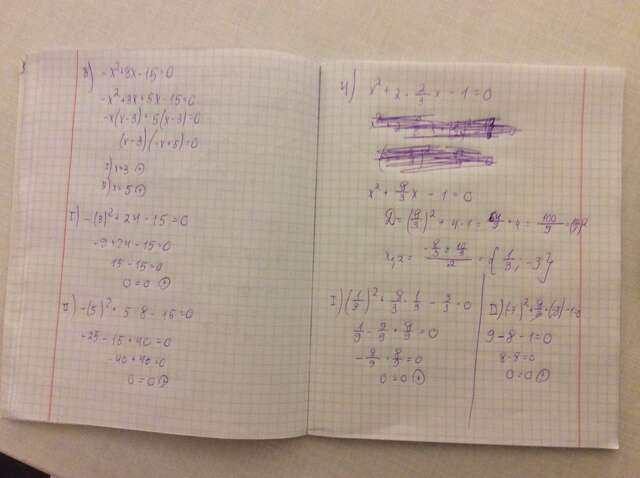 3) -x²+8x-15=0
-x²+3x+5x-15=0
-x(x-3)+5(x-3)=0
(x-3)(-x+5)=0
I) x=3 ⊕
II) x=5 ⊕
I) -(3)²+24-15=0
-9+24-15=0
15-15=0
0=0 ⊕
II) -(5)²+5·8-15=0
-25-15+40=0
-40+40=0
0=0 ⊕
4) x²+2·2/3x-1=0
x²+8/3x-1=0
D=(8/3)²+4·1=64/9+4=100/9=(10/3)²
x₁,₂=(-8/3±10/3)/2={1/3;-3}
I) (1/3)²+8/3·1/3-3/3=0
1/9-9/9+8/9=0
-8/9+8/9=0
0=0 ⊕
II) (-3)²+8/3·(-3)-1=0
9-8-1=0
8-8=0
0=0 ⊕